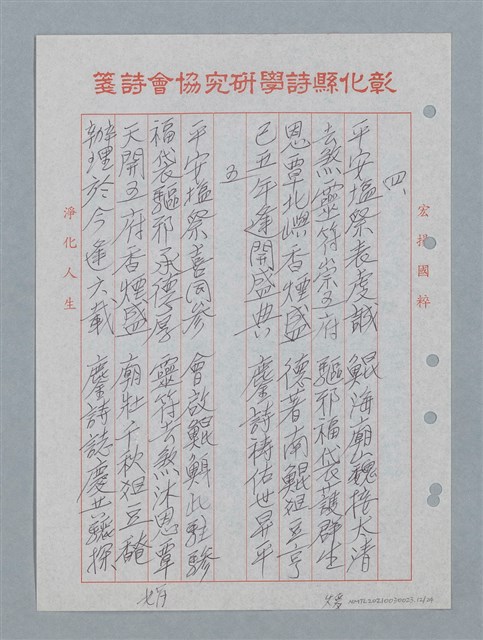 彰化縣詩學研究協會詩箋
宏揚國粹
四、
平安鹽祭表虔誠　鯤海廟巍捲大清
去煞靈符崇五府　驅邪福袋護群生
恩覃北嶼香煙盛　德著南鯤俎豆亨
己丑年逢開盛典　鏖詩禱佑世昇平
五
平安鹽祭喜同參　會啟鯤鯓此駐驂
福袋驅邪承德厚　靈符去煞沐恩覃
天開五府香煙盛　廟壯千秋俎豆醃
辦理於今逢六載　鏖詩誌慶共驪探
淨化人生
NMTL20210030023.12/24